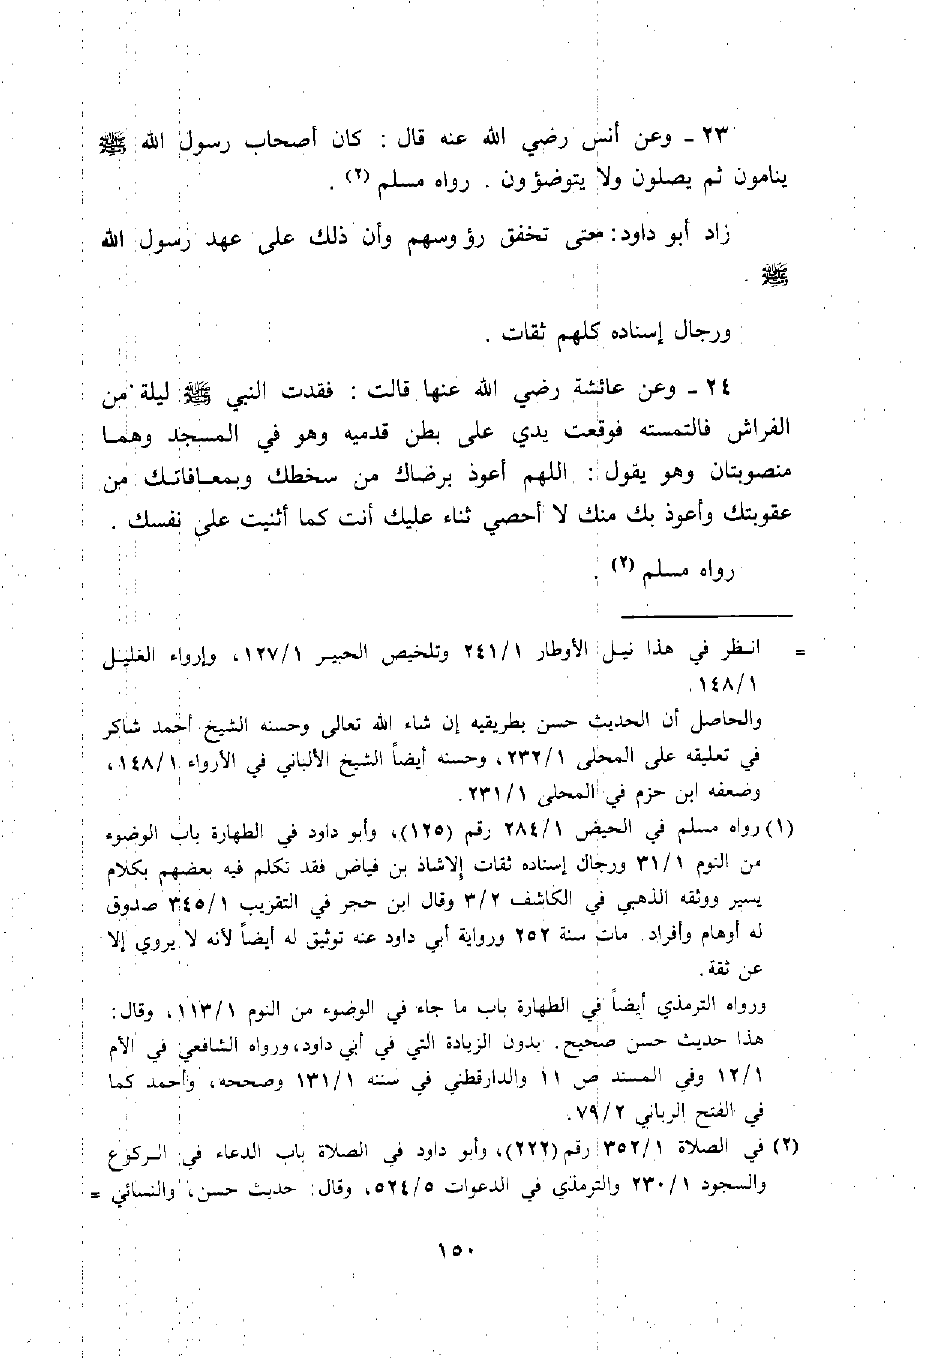 ٢٣ ـ وعن أنس رضي الله عنه قال : كان أصحاب رسول الله ﷺ
ينامون ثم يصلون ولا يتوضؤون . رواه مسلم (٢) .
زاد أبو داود: حتى تخفق رؤوسهم وأن ذلك على عهد رسول الله
ﷺ .
ورجال إسناده كلهم ثقات .
٢٤ ـ وعن عائشة رضي الله عنها قالت : فقدت النبي ﷺ ليلة من
الفراش فالتمسته فوقعت يدي على بطن قدميه وهو في المسجد وهما
منصوبتان وهو يقول : اللهم أعوذ برضاك من سخطك وبمعافاتك من
عقوبتك وأعوذ بك منك لا أحصي ثناء عليك أنت كما أثنيت على نفسك .
رواه مسلم (٢) .
= انظر في هذا نيل الأوطار ٢٤١/١ وتلخيص الحبير ١٢٧/١، وإرواء الغليل
١٤٨/١.
والحاصل أن الحديث حسن بطريقيه إن شاء الله تعالى وحسنه الشيخ أحمد شاكر
في تعليقه على المحلى ٢٣٢/١، وحسنه أيضاً الشيخ الألباني في الأرواء ١٤٨/١،
وضعفه ابن حزم في المحلى ٢٣١/١.
(١) رواه مسلم في الحيض ٢٨٤/١ رقم (١٢٥)، وأبو داود في الطهارة باب الوضوء
من النوم ٣١/١ ورجال إسناده ثقات إلاشاذ بن فياض فقد تكلم فيه بعضهم بكلام
يسير ووثقه الذهبي في الكاشف ٣/٢ وقال ابن حجر في التقريب ٣٤٥/١ صدوق
له أوهام وأفراد. مات سنة ٢٥٢ ورواية أبي داود عنه توثيق له أيضاً لأنه لا يروي إلا
عن ثقة.
ورواه الترمذي أيضاً في الطهارة باب ما جاء في الوضوء من النوم ١١٣/١، وقال:
هذا حديث حسن صحيح. بدون الزيادة التي في أبي داود، ورواه الشافعي في الأم
١٢/١ وفي المسند ص ١١ والدارقطني في سننه ١٣١/١ وصححه، وأحمد كما
في الفتح الرباني ٧٩/٢.
(٢) في الصلاة ٣٥٢/١ رقم (٢٢٢)، وأبو داود في الصلاة باب الدعاء في الركوع
والسجود ٢٣٠/١ والترمذي في الدعوات ٥٢٤/٥، وقال: حديث حسن، والنسائي =
١٥٠